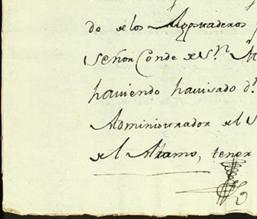 do de los Apoderados
Señor Conde de S.n
haviendo havisado d.n
Administrador del S
del Alamo, tener